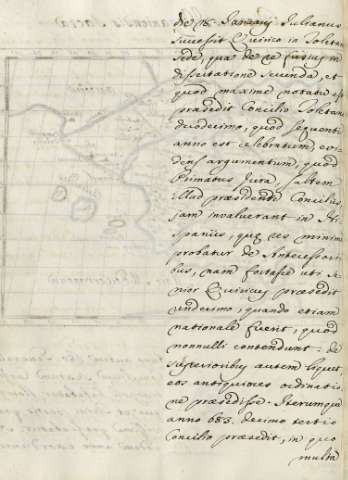 die 18. Januarij Julianus
successit Quirico in Toletan
Sede, qua de re fusius in
dissertatione secunda, et
quod maxime notatu est
præsedit Concilio Toletano
duodecimo, quod sequenti
anno est celebratum, evi-
dens argumentum, quod
Primatus Jura, saltem
illud præsidendi Concilijs,
jam invaluerant in Hi-
spaniis, quæ res minime
probatur de Antecessori-
bus, nam fortasse uti se-
nior Quiricus præsedit
undecimo, quando etiam
nationale fuerit, quod
nonnulli contendunt: de
superioribus autem liquet,
eos antiquiores ordinatio-
ne præsedisse. Iterumque
anno 683. decimo tertio
Concilio præsedit, in quo
multa